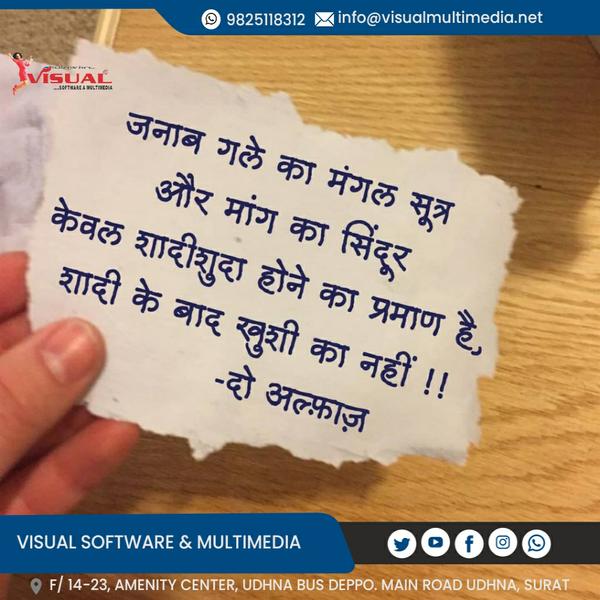 9825118312 info@visualmultimedia.net
VISUAL
...SOFTWARE & MULTIMEDIA
जनाब गले का मंगल सूत्र
और मांग का सिंदूर
केवल शादीशुदा होने का प्रमाण है,
शादी के बाद खुशी का नहीं !!
-दो अल्फ़ाज़
VISUAL SOFTWARE & MULTIMEDIA
F/ 14-23, AMENITY CENTER, UDHNA BUS DEPPO. MAIN ROAD UDHNA, SURAT